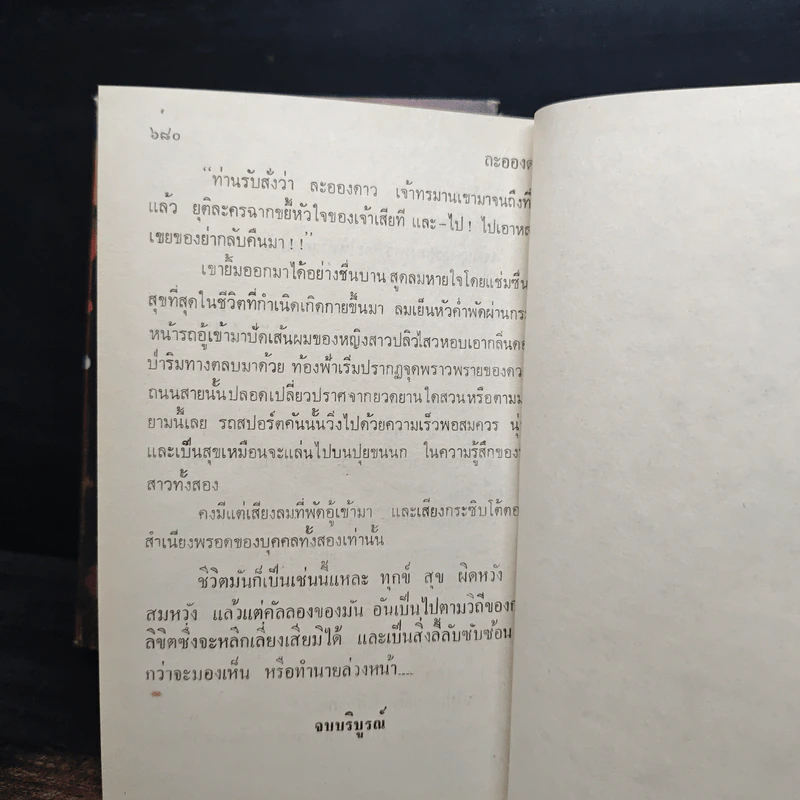 ๖๘๐
ละอองด
“ท่านรับสั่งว่า ละอองดาว เจ้าทรมานเขามาจนถึงที่
แล้ว ยุติละครฉากขยี้หัวใจของเจ้าเสียที และ–ไป! ไปเอาหล
เขยของย่ากลับคืนมา!!”
เขายิ้มออกมาได้อย่างชื่นบาน สูดลมหายใจโดยแช่มชื่น
สุขที่สุดในชีวิตที่กำเนิดเกิดกายขึ้นมา ลมเย็นหัวค่ำพัดผ่านกระ
หน้ารถอู้เข้ามาปัดเส้นผมของหญิงสาวปลิวไสวหอบเอากลิ่นดอ
ป่าริมทางตลบมาด้วย ท้องฟ้าเริ่มปรากฏจุดพราวพรายของดว
ถนนสายนั้นปลอดเปลี่ยวปราศจากยวดยานใดสวนหรือตามม
ยามนี้เลย รถสปอร์ตคันนั้นวิ่งไปด้วยความเร็วพอสมควร นุ่
และเป็นสุขเหมือนจะแล่นไปบนปุยขนนก ในความรู้สึกของ
สาวทั้งสอง
คงมีแต่เสียงลมที่พัดอู้เข้ามา และเสียงกระซิบโต้ตอ
สำเนียงพรอดของบุคคลทั้งสองเท่านั้น
ชีวิตมันก็เป็นเช่นนี้แหละ ทุกข์ สุข ผิดหวัง
สมหวัง แล้วแต่คัลลองของมัน อันเป็นไปตามวิถีของก
ลิขิตซึ่งจะหลีกเลี่ยงเสียมิได้ และเป็นสิ่งลี้ลับซับซ้อน
กว่าจะมองเห็น หรือทำนายล่วงหน้า....
จบบริบูรณ์